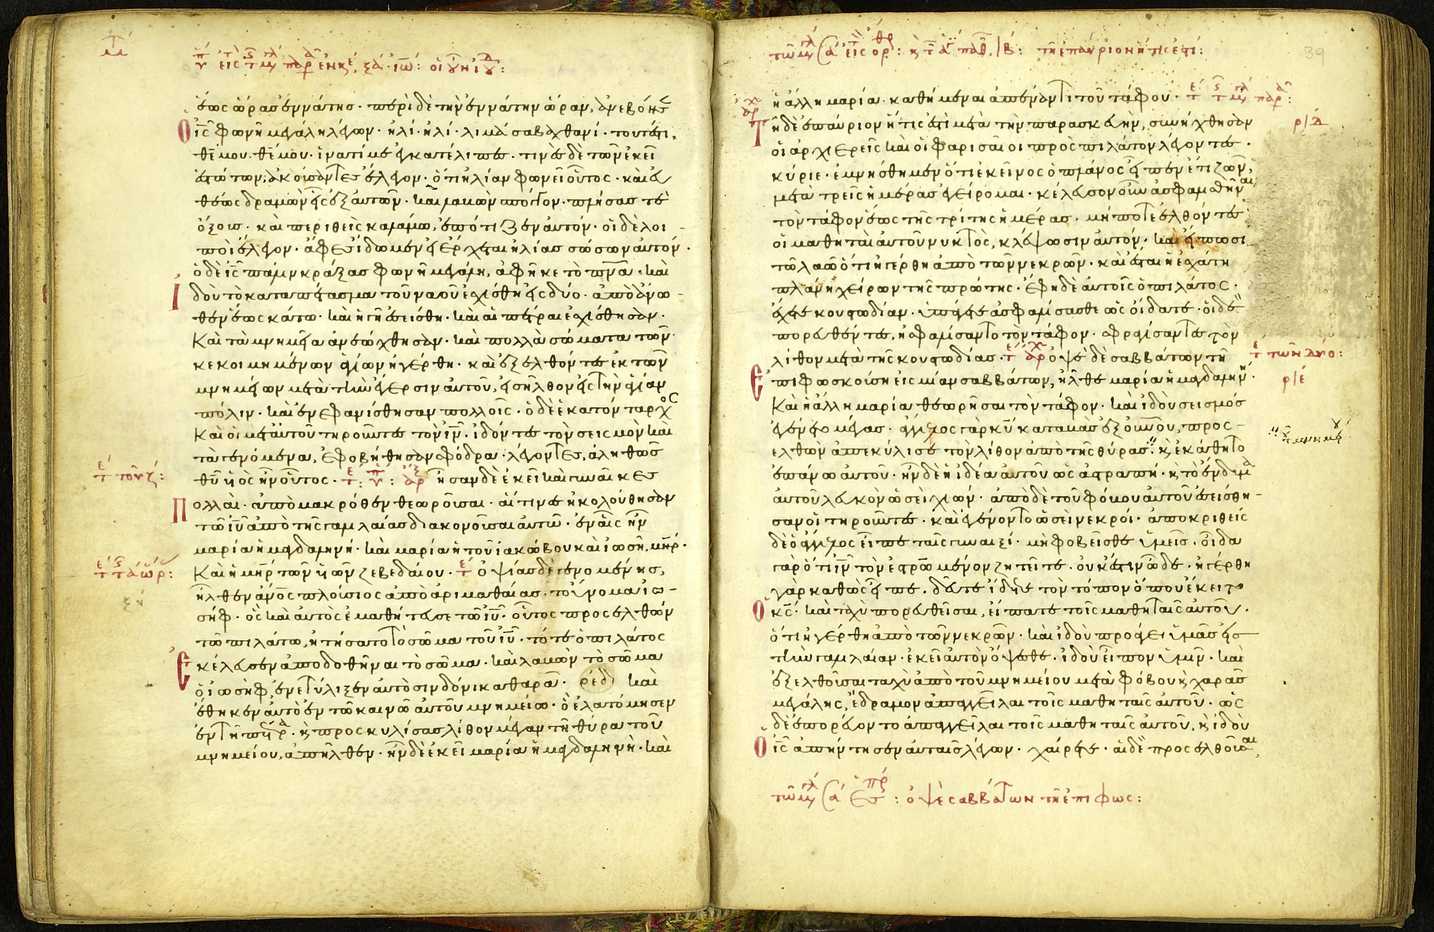 ἕως ὥρας ἐννάτης· περὶ δὲ τὴν ἐννάτην ὥραν, ἀνεβόησεν
ὁ ις φωνῆ μεγάλη λέγων· ἠλὶ· ἠλὶ· λιμὰ σαβαχθανί· τουτέστι,
θέ μου· θέ μου· ἱνατί με ἐγκατέλιπες· τινὲς δὲ τῶν ἐκεῖ
ἑστώτων, ἀκούσαντες ἔλεγον· ὅτι ἠλίαν φωνεῖ οὗτος· καὶ εὐ
θέως δραμὼν εἷς ἐξ αὐτῶν· καὶ λαβὼν σπόγγον· πλήσας τὲ
ὄξους· καὶ περιθεὶς καλάμω, ἐπότιζεν αὐτόν· οἱ δὲ λοι
ποὶ ἔλεγον· ἄφες ἴδωμεν εἰ ἔρχεται ἠλίας σώσων αὐτόν·
ὁ δὲ ις πάλιν κράξας φωνῆ μεγάλη, ἀφῆκε τὸ πνα· καὶ
ἰδοὺ τὸ καταπέτασμα τοῦ ναοῦ ἐσχίσθη εἰς δύο· ἀπὸ ἄνω
θεν ἕως κάτω· καὶ ἡ γῆ ἐσείσθη· καὶ αἱ πέτραι ἐσχίσθησαν·
καὶ τὰ μνημεῖα ἀνεώχθησαν· καὶ πολλὰ σώματα τῶν
κεκοιμημένων ἁγίων ἠγέρθη· καὶ ἐξελθόντες ἐκ τῶν
μνημείων μετὰ τὴν ἔγερσιν αὐτοῦ, εἰσῆλθον εἰς τὴν ἁγίαν
πόλιν· καὶ ἐνεφανίσθησαν πολλοῖς· ὁ δὲ ἑκατόνταρχος
καὶ οἱ μετ αὐτοῦ τηροῦντες τὸν ιν· ἰδόντες τὸν σεισμὸν καὶ
τὰ γενόμενα, ἐφοβήθησαν σφόδρα· λέγοντες, ἀληθῶς
θυ υς ἦν οὗτος· ἦσαν δὲ ἐκεῖ καὶ γυναῖκες
πολλαὶ· ἀπὸ μακρόθεν θεωροῦσαι· αἵτινες ἠκολούθησαν
τῶ ιυ ἀπὸ τῆς γαλιλαίας διακονοῦσαι αὐτῶ· ἐν αἷς ἦν
μαρία ἡ μαγδαληνή· καὶ μαρία ἡ τοῦ ἰακώβου καὶ ἰωσῆ μηρ·
καὶ ἡ μηρ τῶν υἱῶν ζεβεδαίου· ὀψίας δὲ γενομένης,
ἦλθεν ανος πλούσιος ἀπὸ ἀριμαθαίας· τοὔνομα ἰω
σήφ· ὃς καὶ αὐτὸς ἐμαθήτευσε τῶ ιυ· οὗτος προσελθὼν
τῶ πιλάτω, ἠτήσατο τὸ σῶμα τοῦ ιυ· τότε ὁ πιλάτος
ἐκέλευσεν ἀποδοθῆναι τὸ σῶμα· καὶ λαβὼν τὸ σῶμα
ὁ ἰωσὴφ, ἐνετύλιξεν αὐτὸ σινδόνι καθαρᾶ· καὶ
ἔθηκεν αὐτὸ ἐν τῶ καινῶ αὐτοῦ μνημείω· ὃ ἐλατόμησεν
ἐν τῆ πέτρα· καὶ προσκυλίσας λίθον μέγαν τῆ θύρα τοῦ
μνημείου, ἀπῆλθεν· ἦν δὲ ἐκεῖ μαρία ἡ μαγδαληνὴ· καὶ
τῆ ἐπαύριον ἥτις ἐστὶ:
ἡ ἄλλη μαρία· καθήμεναι ἀπέναντι τοῦ τάφου·
τῆ δὲ ἐπαύριον ἥτις ἐστὶ μετὰ τὴν παρασκευὴν, συνήχθησαν
οἱ ἀρχιερεῖς καὶ οἱ φαρισαῖοι πρὸς πιλάτον λέγοντες·
κύριε· ἐμνήσθημεν ὅτι ἐκεῖνος ὁ πλάνος εἶπεν ἔτι ζῶν,
μετὰ τρεῖς ἡμέρας ἐγείρομαι· κέλευσον οὖν ἀσφαλισθῆναι
τὸν τάφον ἕως τῆς τρίτης ἡμέρας· μήποτε ἐλθόντες
οἱ μαθηταὶ αὐτοῦ νυκτὸς, κλέψωσιν αὐτόν· καὶ εἴπωσι
τῶ λαῶ ὅτι ἠγέρθη ἀπὸ τῶν νεκρῶν· καὶ ἔσται ἡ ἐσχάτη
πλάνη χείρων τῆς πρώτης· ἔφη δὲ αὐτοῖς ὁ πιλάτος·
ἔχετε κουστωδίαν· ὑπάγετε ἀσφαλίσασθε ὡς οἴδατε· οἱ δὲ
πορευθέντες, ἠσφαλίσαντο τὸν τάφον· σφραγίσαντες τὸν
λίθον μετὰ τῆς κουστωδίας· ὀψὲ δὲ σαββάτων τῆ
ἐπιφωσκούση εἰς μίαν σαββάτων, ἦλθε μαρία ἡ μαγδαληνὴ·
καὶ ἡ ἄλλη μαρία θεωρῆσαι τὸν τάφον· καὶ ἰδοὺ σεισμὸς
ἐγένετο μέγας· ἄγγελος γὰρ κυ καταβὰς ἐξ οὐνου, προς
ελθὼν ἀπεκύλισε τὸν λίθον ἀπὸ τῆς θύρας· καὶ ἐκάθητο
ἐπάνω αὐτοῦ· ἦν δὲ ἡ ἰδέα αὐτοῦ ὡς ἀστραπὴ· καὶ τὸ ἔνδυμα
αὐτοῦ λευκὸν ὡσεὶ χιών· ἀπὸ δὲ τοῦ φόβου αὐτοῦ ἐσείσθη
σαν οἱ τηροῦντες· καὶ ἐγένοντο ὡσεὶ νεκροί· ἀποκριθεὶς
δὲ ὁ ἄγγελος εἶπε ταῖς γυναιξί· μὴ φοβεῖσθε ὑμεῖς· οἶδα
γὰρ ὅτι ιν τὸν ἐσταυρωμένον ζητεῖτε· οὐκ ἔστιν ὧδε· ἠγέρθη
γὰρ καθὼς εἶπε· δεῦτε ἴδετε τὸν τόπον ὅπου ἔκειτο
ὁ κς· καὶ ταχὺ πορευθεῖσαι, εἴπατε τοῖς μαθηταῖς αὐτοῦ·
ὅτι ἠγέρθη ἀπὸ τῶν νεκρῶν· καὶ ἰδοὺ προάγει ὑμᾶς εἰς
τὴν γαλιλαίαν· ἐκεῖ αὐτὸν ὄψεσθε· ἰδοὺ εἶπον ὑμῖν· καὶ
ἐξελθοῦσαι ταχὺ ἀπὸ τοῦ μνημείου μετὰ φόβου καὶ χαρᾶς
μεγάλης, ἔδραμον ἀπαγγεῖλαι τοῖς μαθηταῖς αὐτοῦ· ὡς
δὲ ἐπορεύοντο ἀπαγγεῖλαι τοῖς μαθηταῖς αὐτοῦ, καὶ ἰδοὺ
ὁ ις ἀπήντησεν αὐταῖς λέγων· χαίρετε· αἱ δὲ προσελθοῦσαι,
ὀψὲ σαββάτων τῆ ἐπιφως: